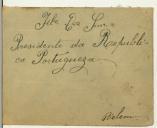 Ilmo Exmo Snr.
Presidente da Republi-
ca Portugueza
Belem